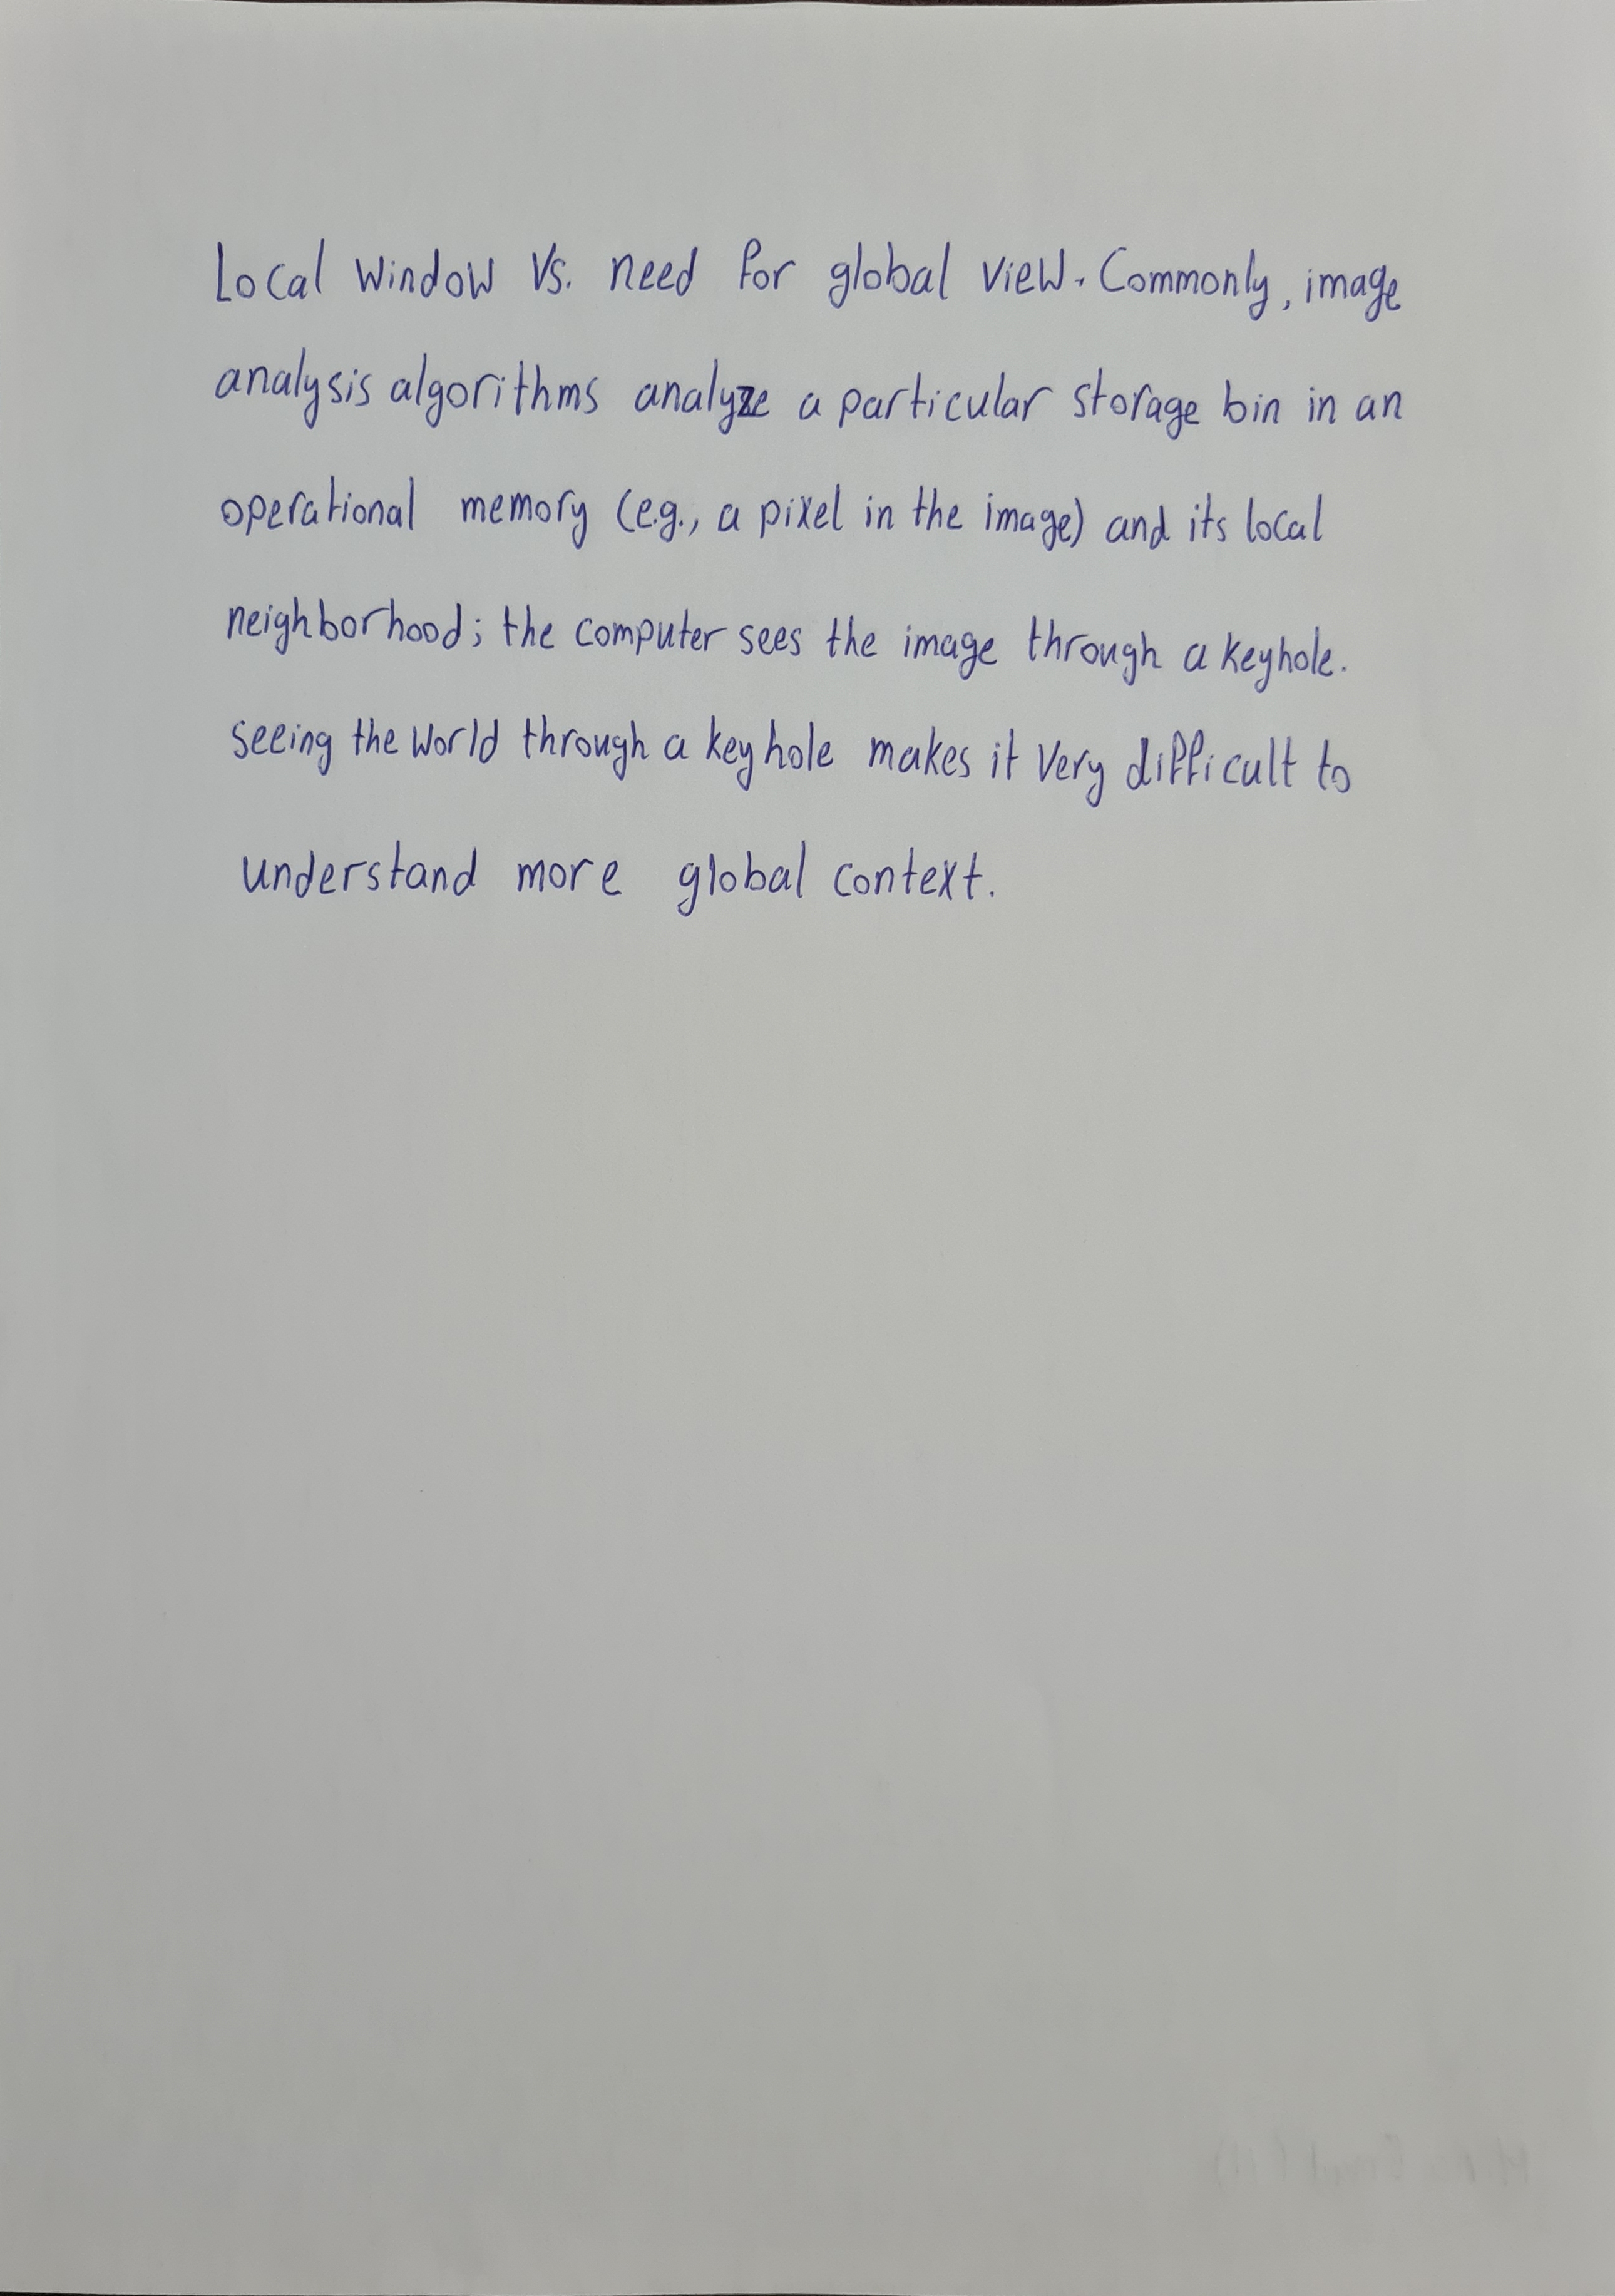 Local window Vs. need for global view. Commonly, image
analysis algorithms analyze a particular storage bin in an
operational memory (e.g., a pixel in the image) and its local
neighborhood; the computer sees the image through a keyhole.
seeing the world through a keyhole makes it very difficult to
understand more global context.